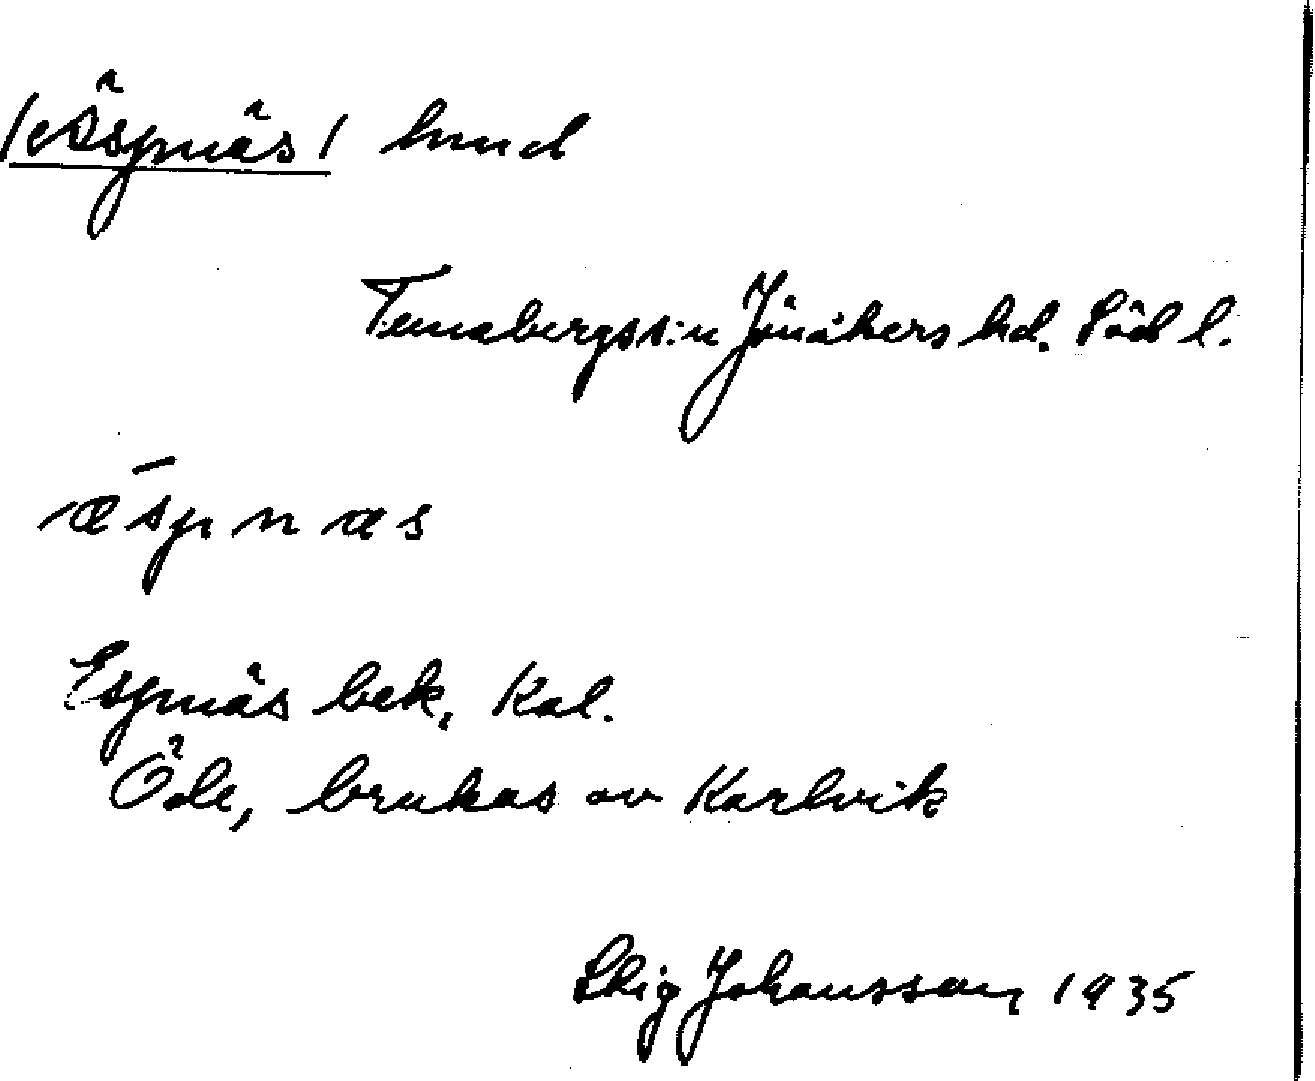 /Äspnäs/ hmd
Tunabergs s:n Jönåkers hd. Söd l.
æspnæs
Espnäs bek. Kal.
Öde, brukas av Karlvik
Stig Johansson 1935